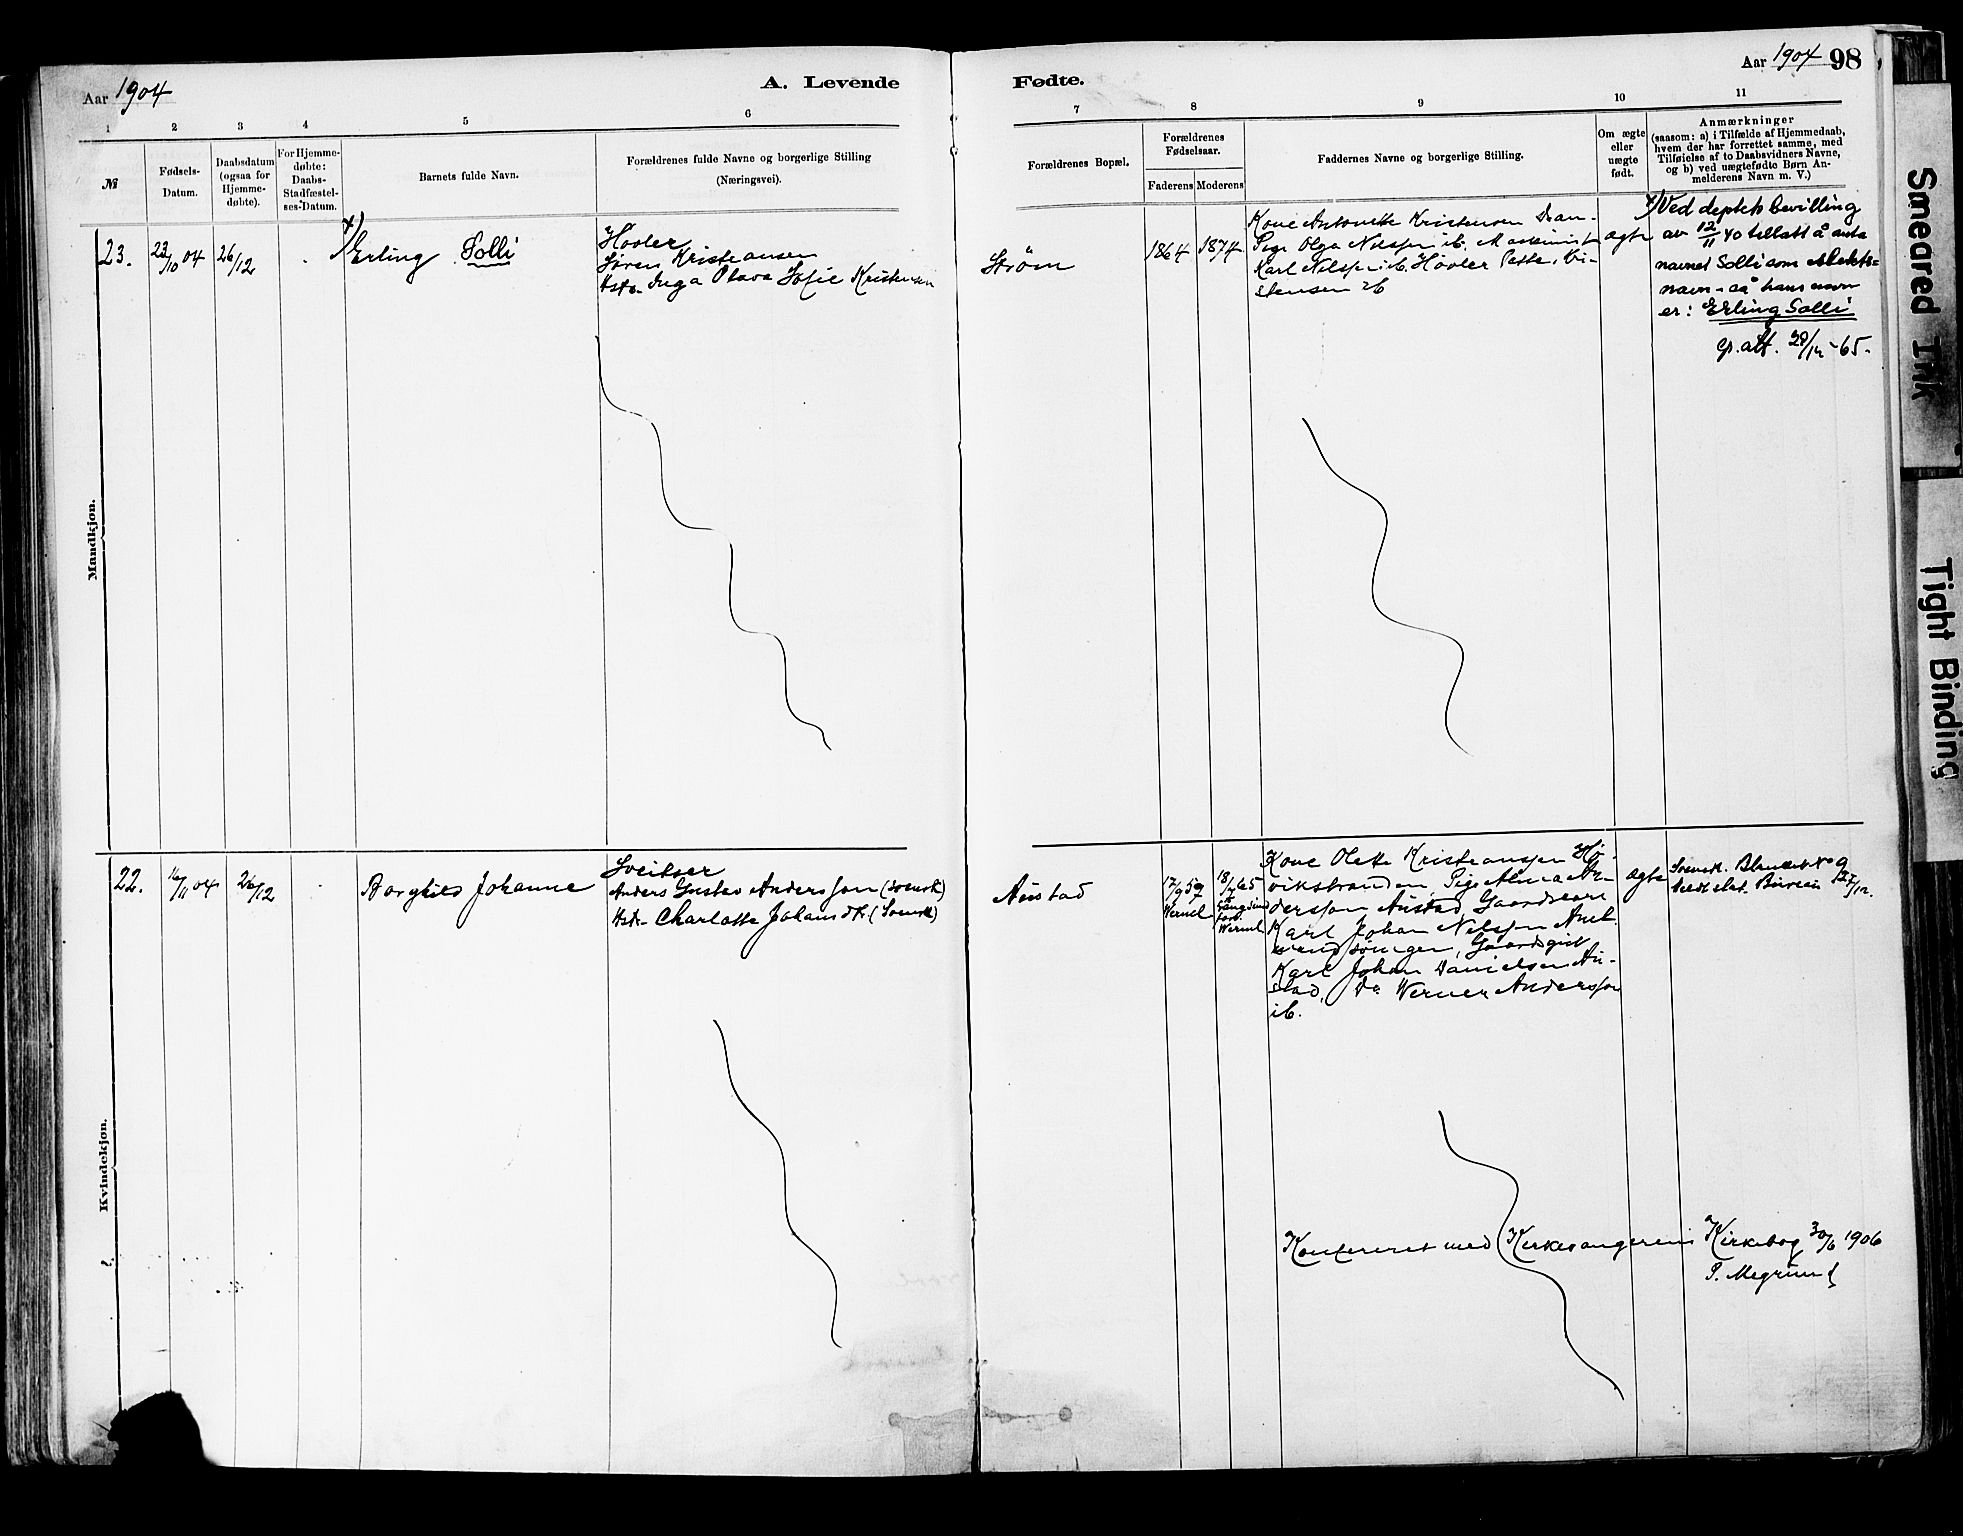 Aar 1904
A. Levende
Fødte.
Aar 1904 98
1 2 3 4 5 6 7 8 9 10 11
№
Fødsels-
Datum.
Daabsdatum
(ogsaa for
Hjemme-
døbte).
For Hjemme-
døbte:
Daabs-
Stadfæstel-
ses-Datum.
Barnets fulde Navn.
Forældrenes fulde Navne og borgerlige Stilling
(Næringsvei).
Forældrenes Bopæl.
Forældrenes
Fødselsaar.
Faderens Moderens
Faddernes Navne og borgerlige Stilling.
Om ægte
eller
uægte
født.
Anmærkninger
(saasom: a) i Tilfælde af Hjemmedaab,
hvem der har forrettet samme, med
Tilføielse af to Daabsvidners Navne,
og b) ved uægtefødte Børn An-
melderens Navn m. V.)
Mandkjøn.
23.
23/10 04
26/12
x) Erling Solli
Høvler
Søren Kristiansen
Hstr. Inga Olava Sofie Kristensen
Strøm
1864 1874
Kone Antonette Kristensen
Pige Olga Nilssen ib. Maskinist
Karl Nilssen ib. Høvler
stensen ib
ægte
x) Ved deptets bevilling
av 12/11 40 tillatt å anta
navnet Solli som slekts-
navn - så hans navn
er: Erling Solli
28/12 - 65.
Kvindekjøn.
22.
16/11 04
26/12
Borghild Johanne
Sveitser
Anders Gustav Andersson (svensk)
Hstr. Charlotte Johansdtr (Svensk)
Austad
17/9 59
Werml.
18/7 65
Werml.
Kone Olette Kristianssen Hø-
vikstranden, Pige Alma An-
dersson Austad, Gaardseier
Karl Johan Nilssen
Gaardsgut
Karl Johan Danielsen Au-
stad, Do Werner Andersson
ib.
ægte
Svensk. Blanket No 9
sendt stat. Bureau 27/12.
Konfereret med Kirkesangerens Kirkebog 30/6 1906
Smeared Ink
Tight Binding